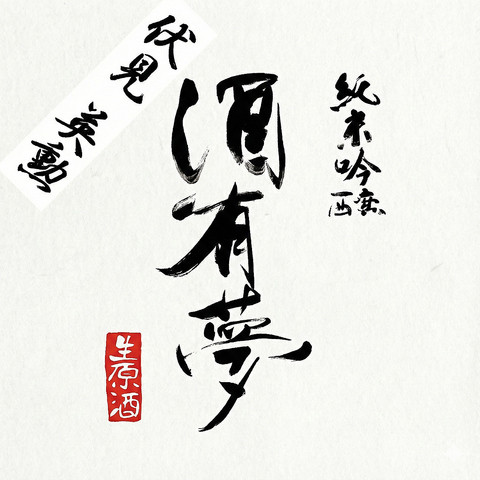 純米吟醸
酒有夢
伏見 英勲
生原酒